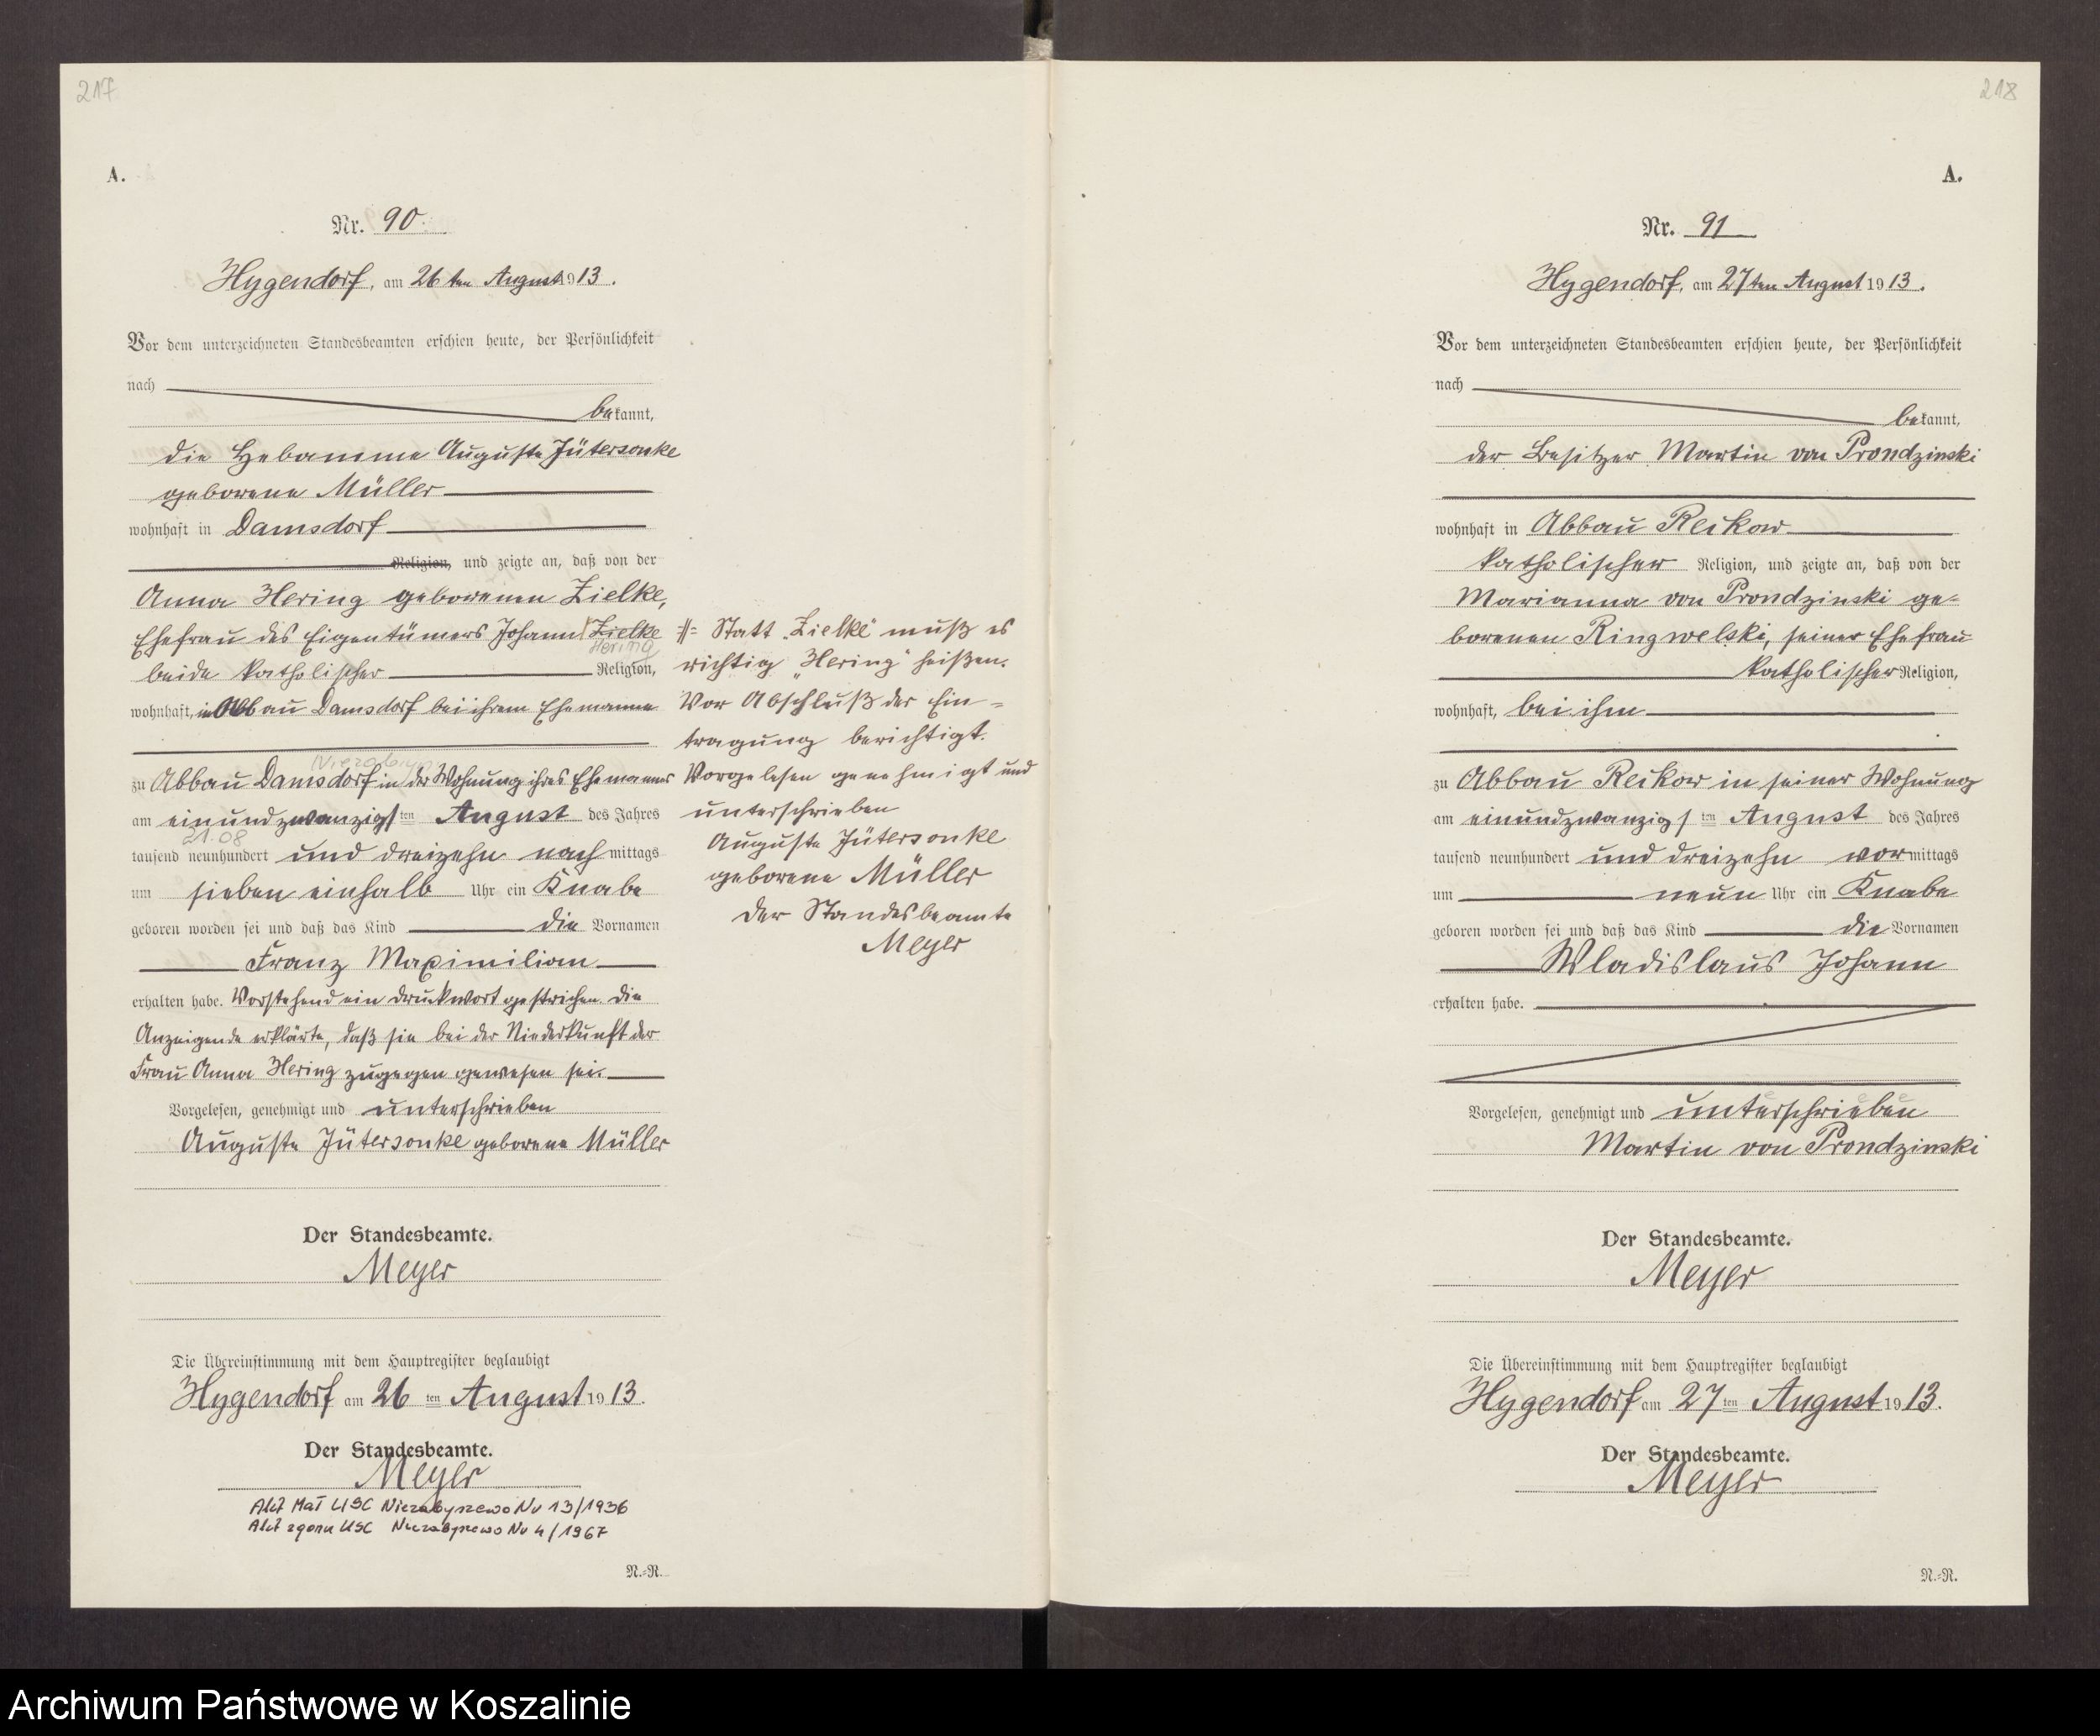 217
A.
Nr. 90.
Hygendorf, am 26ten August 1913.
Vor dem unterzeichneten Standesbeamten erschien heute, der Persönlichkeit
nach
bekannt,
die Hebamme Auguste Jütersonke
geborene Müller
wohnhaft in Damsdorf
Religion, und zeigte an, daß von der
Anna Hering geborenen Zielke,
Ehefrau des Eigentümers Johann Zielke
Hering
beide katholischer Religion,
wohnhaft, in Abbau Damsdorf bei ihrem Ehemanne
zu Abbau Damsdorf in der Wohnung ihres Ehemannes
am einundzwanzigsten August des Jahres
21.08
tausend neunhundert und dreizehn nachmittags
um sieben einhalb Uhr ein Knabe
geboren worden sei und daß das Kind die Vornamen
Franz Maximilian
erhalten habe. Vorstehend ein Druckwort gestrichen. Die
Anzeigende erklärte, daß sie bei der Niederkunft der
Frau Anna Hering zugegen gewesen sei.
Vorgelesen, genehmigt und unterschrieben
Auguste Jütersonke geborene Müller
Der Standesbeamte.
Meyer
Die Übereinstimmung mit dem Hauptregister beglaubigt
Hygendorf am 26ten August 1913.
Der Standesbeamte.
Meyer
Akt Mał USC Niezabyszewo Nr 13/1936
Akt zgonu USC Niezabyszewo Nr 4/1967
N.-R.
Statt „Zielke“ muß es
richtig „Hering“ heißen.
Vor Abschluß der Ein-
tragung berichtigt.
Vorgelesen genehmigt und
unterschrieben
Auguste Jütersonke
geborene Müller
Der Standesbeamte
Meyer
218
A.
Nr. 91
Hygendorf, am 27ten August 1913.
Vor dem unterzeichneten Standesbeamten erschien heute, der Persönlichkeit
nach
bekannt,
der Besitzer Martin von Prondzinski
wohnhaft in Abbau Reckow
katholischer Religion, und zeigte an, daß von der
Marianna von Prondzinski ge-
borenen Ringwelski, seiner Ehefrau
katholischer Religion,
wohnhaft, bei ihm
zu Abbau Reckow in seiner Wohnung
am einundzwanzigsten August des Jahres
tausend neunhundert und dreizehn vormittags
um neun Uhr ein Knabe
geboren worden sei und daß das Kind die Vornamen
Wladislaus Johann
erhalten habe.
Vorgelesen, genehmigt und unterschrieben
Martin von Prondzinski
Der Standesbeamte.
Meyer
Die Übereinstimmung mit dem Hauptregister beglaubigt
Hygendorf am 27ten August 1913.
Der Standesbeamte.
Meyer
N.-R.
Archiwum Państwowe w Koszalinie